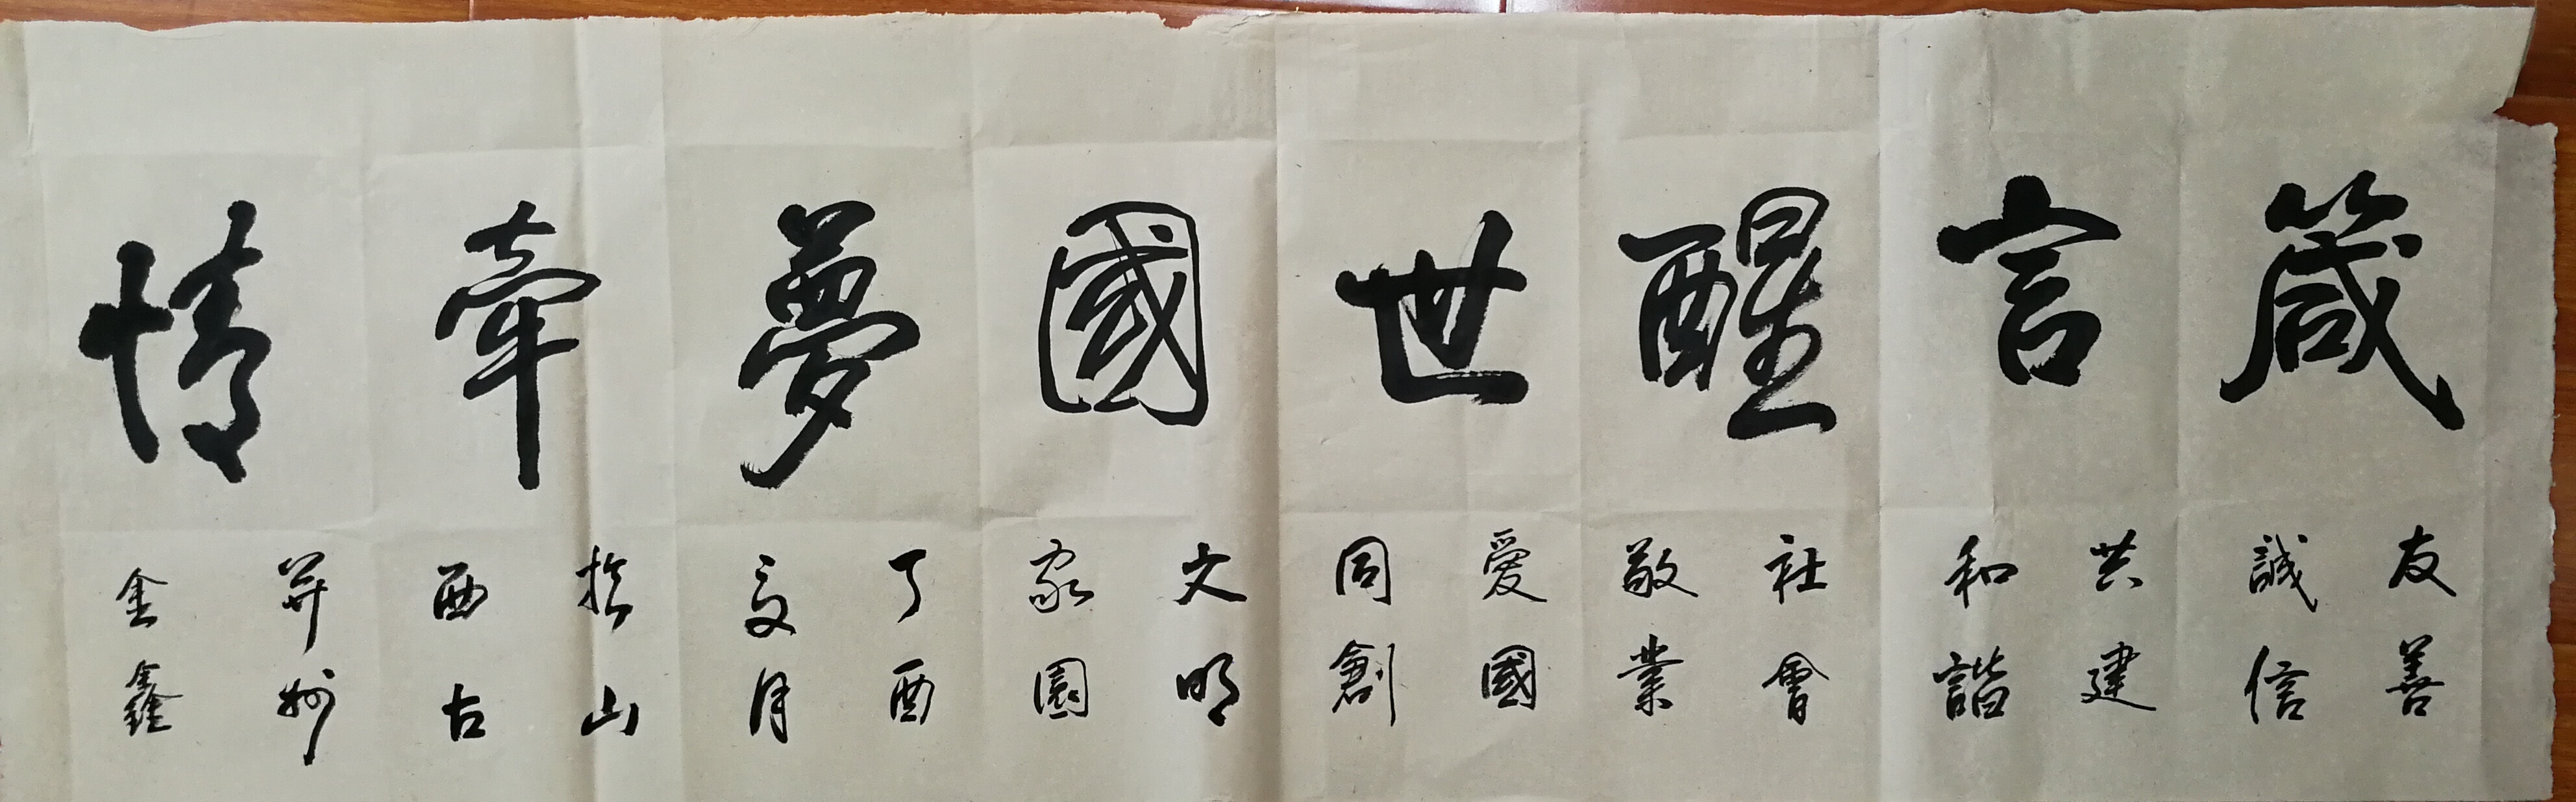 箴言醒世國夢牽情
友善
誠信
共建
和諧
社會
敬業
愛國
同創
文明
家園
丁酉
夏月
於山
西古
并州
金鑫